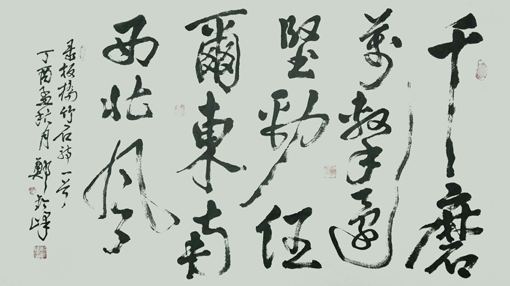 千磨
萬擊還
堅勁任
爾東南
西北風
录板橋竹石詩一首
丁酉孟秋月鄭峰